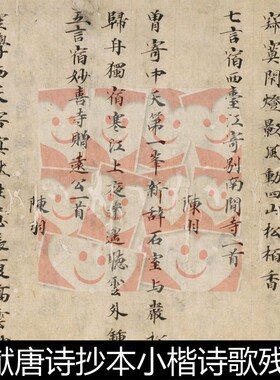 寞閑燈影風動山松柏香
七言宿西臺江寄別南開寺一首
陳羽
曾寄中天第一峯新辭石室与嚴松
歸舟獨宿寒江上夜遥聽雲外鍾
五言宿妙善寺贈遠公一首
陳羽
献唐诗抄本小楷诗歌残